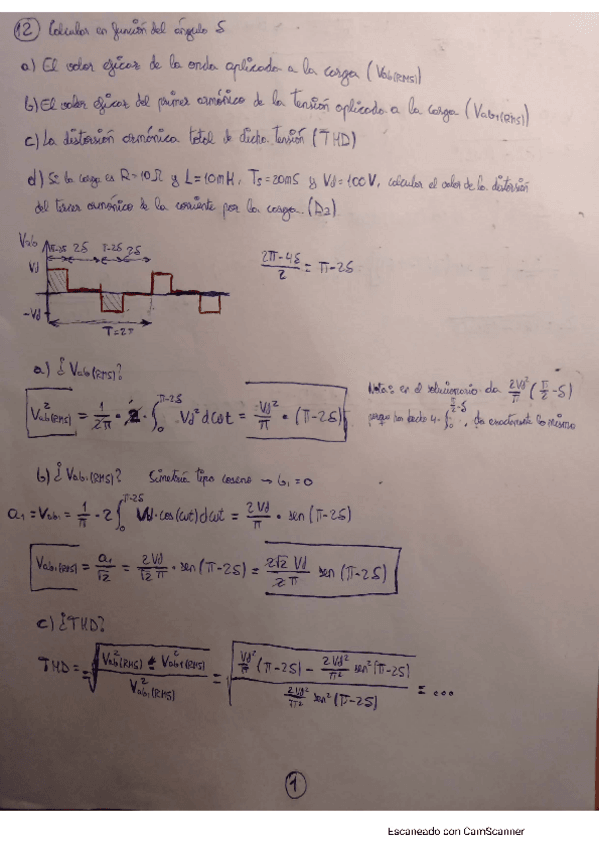 12 Calcular en función del ángulo δ
a) El valor eficaz de la onda aplicada a la carga (Vab(RMS))
b) El valor eficaz del primer armónico de la tensión aplicada a la carga (Vab1(RMS))
c) La distorsión armónica total de dicha tensión (THD)
d) Si la carga es R=10Ω y L=10mH, Ts=20ms y Vd=100V, calcular el valor de la distorsión
del tercer armónico de la corriente por la carga. (D3)
Vab π-2δ 2δ π-2δ 2δ
Vd
-Vd
T=2π
(2π-4δ)/2 = π-2δ
a) ¿Vab(RMS)?
V²ab(RMS) = 1/2π · 2 · ∫₀^(π-2δ) Vd² dωt = Vd²/π · (π-2δ)
Nota: en el solucionario da 2Vd²/π (π/2-δ)
porque han hecho 4·∫₀^(π/2-δ), da exactamente lo mismo
b) ¿Vab1(RMS)? Simetría tipo coseno → b1=0
a1 = Vab1 = 1/π · 2 ∫₀^(π-2δ) Vd·cos(ωt)dωt = 2Vd/π · sen(π-2δ)
Vab1(RMS) = a1/√2 = 2Vd/(√2 π) · sen(π-2δ) = 2√2 Vd/(2π) sen(π-2δ)
c) ¿THD?
THD = √((V²ab(RMS) - V²ab1(RMS))/V²ab1(RMS)) = √((Vd²/π (π-2δ) - 2Vd²/π² sen²(π-2δ))/(2Vd²/π² sen²(π-2δ))) = ...
1
Escaneado con CamScanner